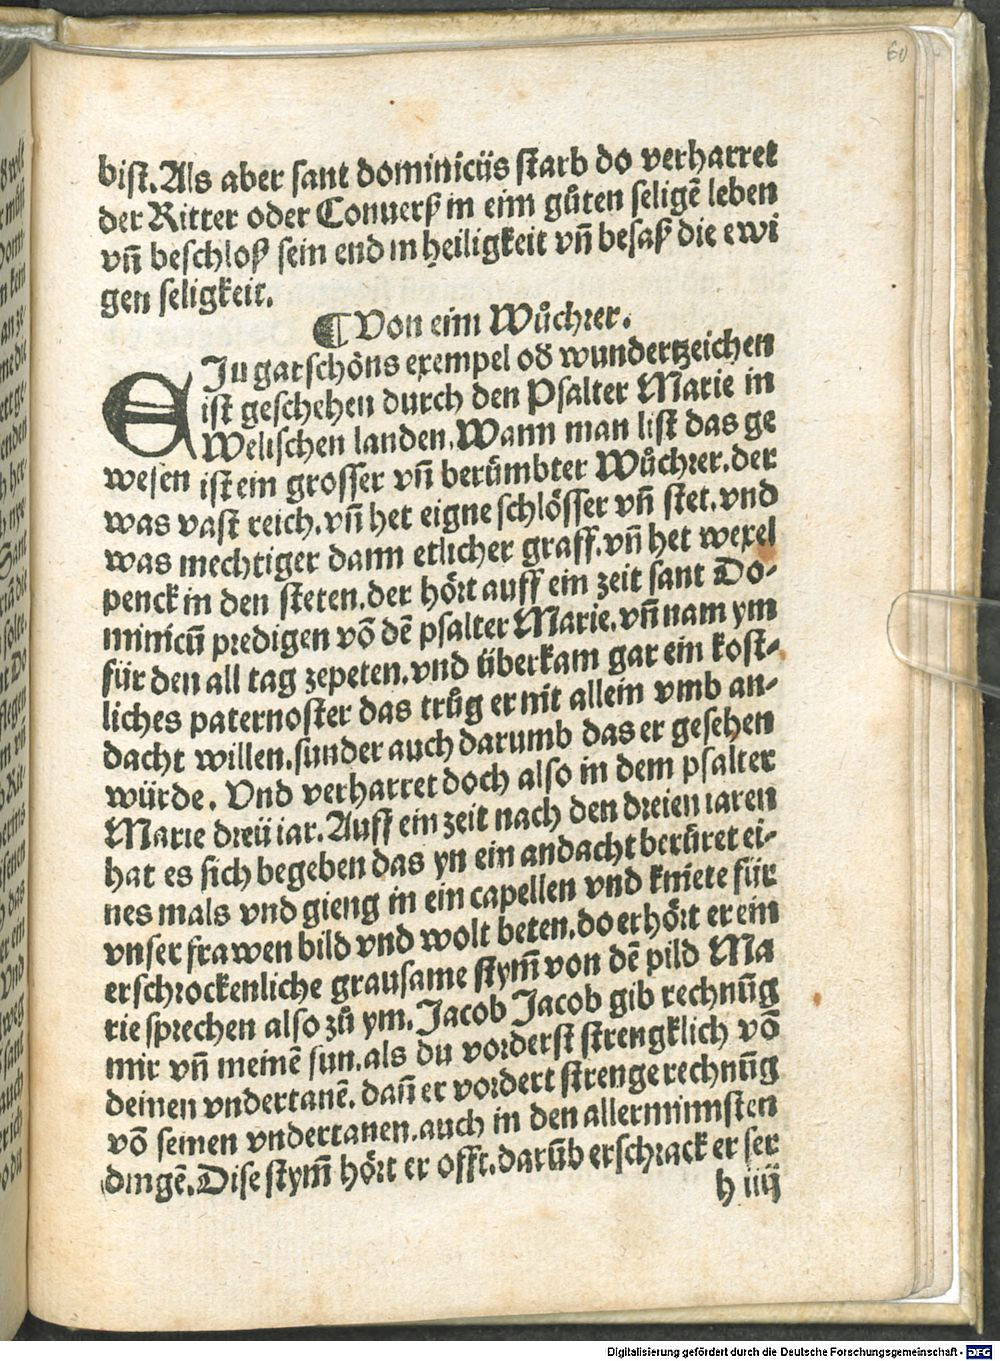 60
bist. Als aber sant dominicüs starb do verharret
der Ritter oder Conuerß in eim gůten seligē leben
vn̄ beschloß sein end in heiligkeit vn̄ besaß die ewi
gen seligkeit.
¶ Von eim Wůchrer.
EJn gar schöns exempel oď wundertzeichen
ist geschehen durch den Psalter Marie in
Welischen landen. Wann man list das ge
wesen ist ein grosser vn̄ berümbter Wůchrer. der
was vast reich. vn̄ het eigne schlösser vn̄ stet. vnd
was mechtiger dann etlicher graff. vn̄ het wexel
penck in den steten. der hört auff ein zeit sant Do⸗
minicū predigen vō dē psalter Marie. vn̄ nam ym
für den all tag zepeten. vnd überkam gar ein kost⸗
liches paternoster das trůg er nit allein vmb an⸗
dacht willen. sunder auch darumb das er gesehen
würde. Vnd verharret doch also in dem psalter
Marie dreü iar. Auff ein zeit nach den dreien iaren
hat es sich begeben das yn ein andacht berüret ei⸗
nes mals vnd gieng in ein capellen vnd kniete für
vnser frawen bild vnd wolt beten. do erhört er ein
erschrockenliche grausame stym̄ von dē pild Ma
rie sprechen also zů ym. Jacob Jacob gib rechnūg
mir vn̄ meinē sun. als du vorderst strengklich vō
deinen vndertanē. dan̄ er vordert strenge rechnūg
vō seinen vndertanen. auch in den allerminnsten
dingē. Dise stym̄ hört er offt. darūb erschrack er ser
h iiij
Digitalisierung gefördert durch die Deutsche Forschungsgemeinschaft - DFG